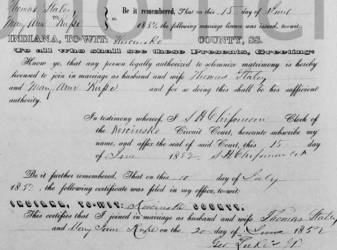 Thomas Staley
to
Mary Ann Rupe
Be it remembered, That on this 15 day of June
1852 the following marriage license was issued, to-wit:
INDIANA, TO-WIT: Kosciusko COUNTY, SS.
To all who shall see these Presents, Greeting
Know ye, that any person legally authorized to solemnize matrimony is hereby
licensed to join in marriage as husband and wife Thomas Staley
and Mary Ann Rupe and for so doing this shall be his sufficient
authority.
In testimony whereof, I S H Chipman Clerk of
the Kosciusko Circuit Court, hereunto subscribe my
name, and affix the seal of said Court, this 15 day
of June 1852 S H Chipman Clk
Be it further remembered, That on this 10 day of July
1852, the following certificate was filed in my office, to-wit:
INDIANA, TO-WIT: Kosciusko COUNTY.
This certifies that I joined in marriage as husband and wife Thomas Staley
and Mary Ann Rupe on the 20 day of June 1852
Geo J.P.